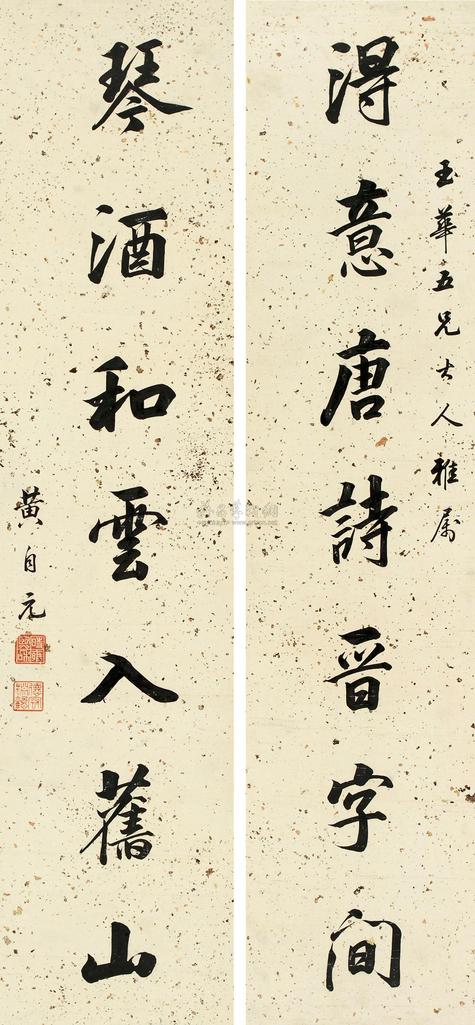 玉華五兄大人雅属
得意唐詩晋字間
琴酒和雲入舊山
黄自元